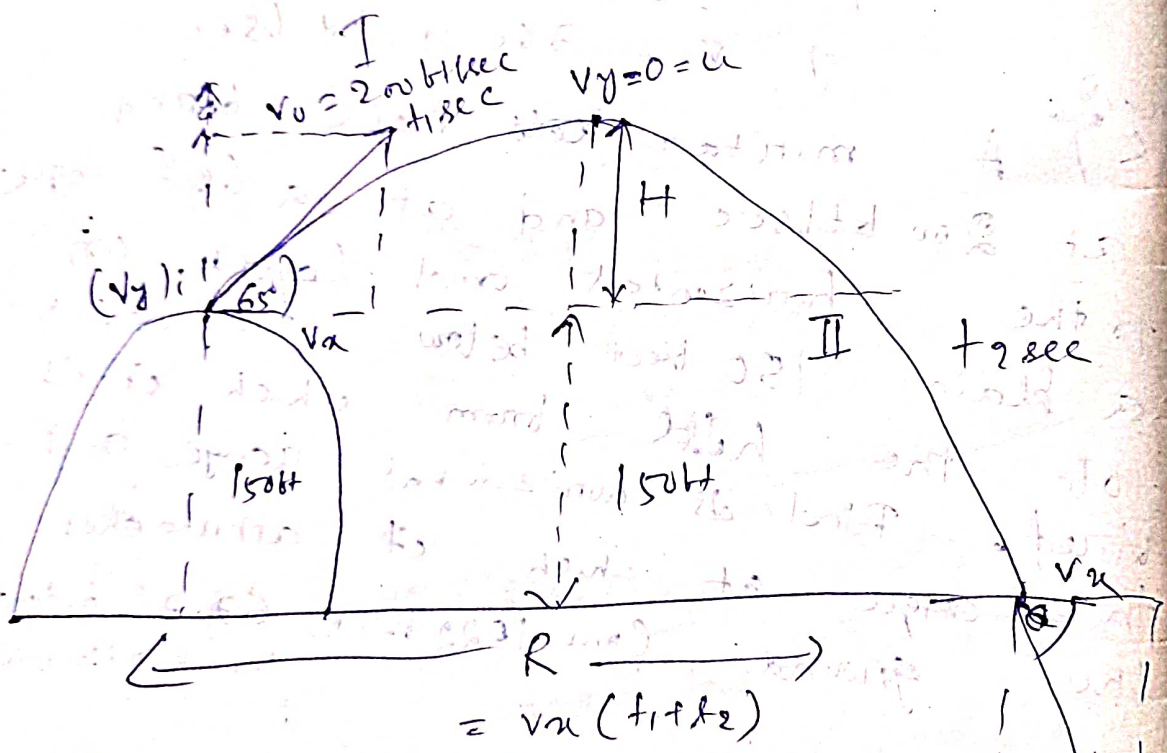 I
v₀ = 200 ft/sec
t₁ sec
Vy = 0 = u
H
(Vy)i
65°
Vx
II
t₂ sec
150ft
150ft
Vx
θ
R
= Vx (t₁ + t₂)